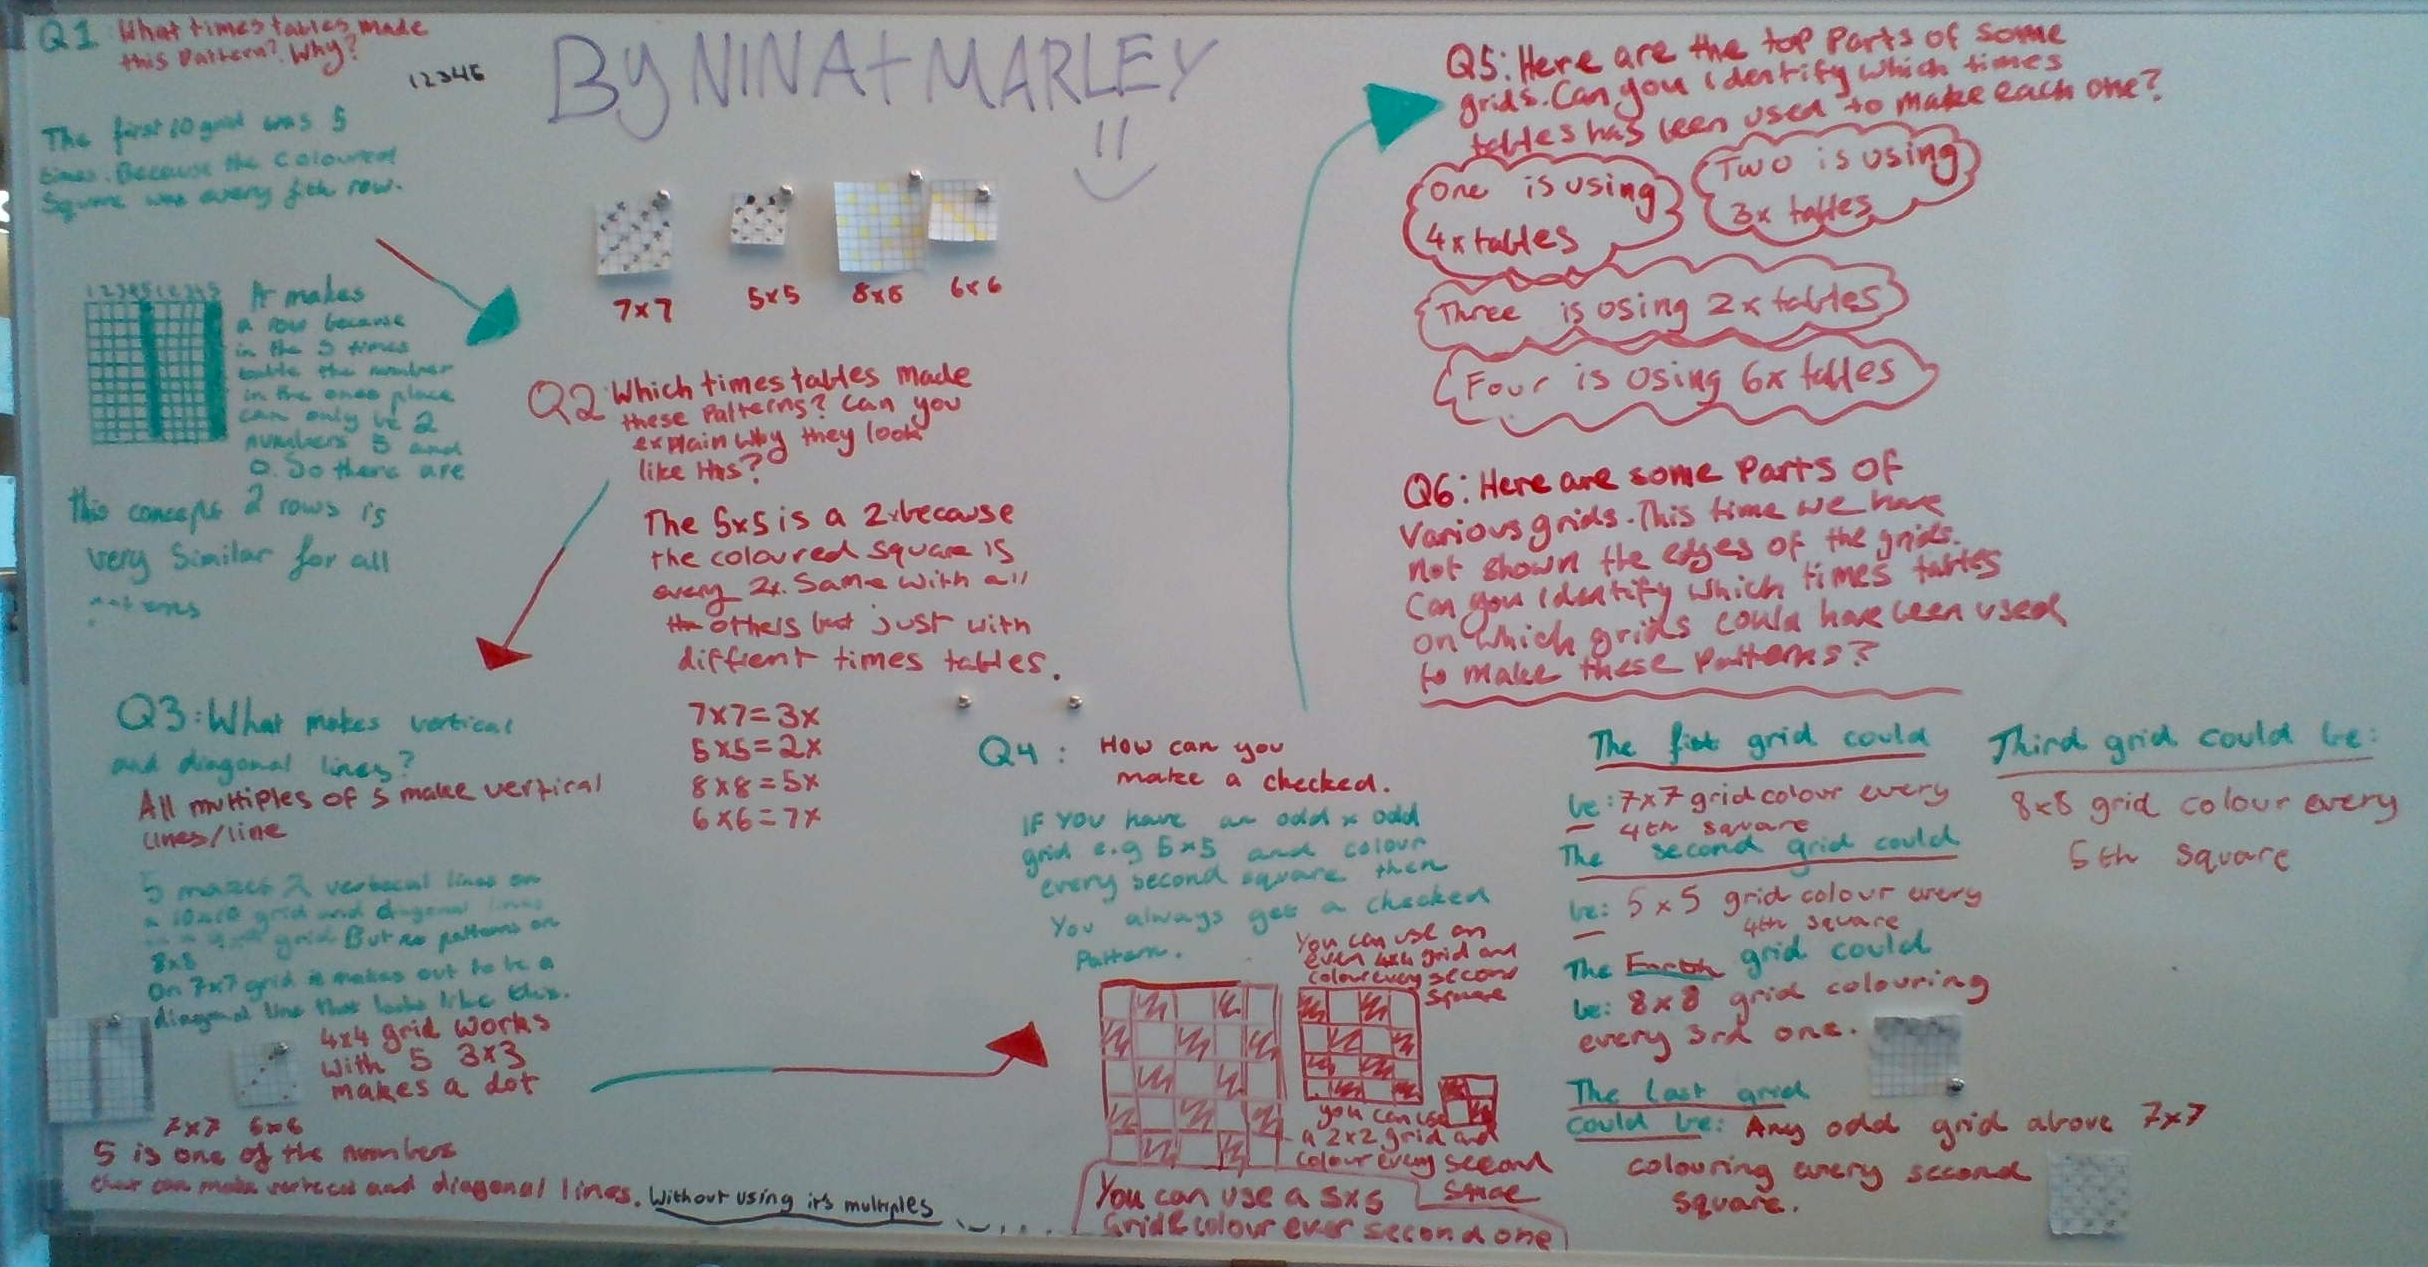 Q1 What times tables made
this Pattern? Why?
12345
The first 10 grid was 5
times. Because the Coloured
Square was every 5th row.
1 2 3 4 5 1 2 3 4 5
It makes
a row because
in the 5 times
table the number
in the ones place
can only be 2
numbers 5 and
0. So there are
this concept 2 rows is
very Similar for all
By NINA + MARLEY
7x7
5x5
8x8
6x6
Q2 Which times tables made
these Patterns? Can you
explain why they look
like this?
The 5x5 is a 2x because
the coloured square is
every 2x. Same with all
the others but just with
diffrent times tables.
7x7=3x
5x5=2x
8x8=5x
6x6=7x
Q3: What makes vertical
and diagonal lines?
All multiples of 5 make vertical
lines/line
5 makes 2 vertecal lines on
a 10x10 grid and diagonal lines
grid But no patterns on
8x8
On 7x7 grid it makes out to be a
diagonal line that looks like this.
4x4 grid works
with 5 3x3
makes a dot
7x7 6x6
5 is one of the numbers
that can make vertecal and diagonal lines. Without using it's multiples
Q4: How can you
make a checked.
IF You have an odd x odd
grid e.g 5x5 and colour
every second square then
You always get a checked
Pattern.
You can use an
even 4x4 grid and
colour every second
square
you can use
a 2x2 grid and
colour every second
You can use a 5x5
Grid & colour ever second one
Q5: Here are the top Parts of Some
grids. Can you identify which times
tables has been used to make each one?
One is using
4x tables
Two is using
3x tables
Three is using 2x tables
Four is using 6x tables
Q6: Here are some Parts of
Various grids. This time we have
not shown the edges of the grids.
Can you identify which times tables
on which grids could have been used
to make these Patterns?
The first grid could
be: 7x7 grid colour every
4th square
The second grid could
be: 5x5 grid colour every
4th square
The Fourth grid could
be: 8x8 grid colouring
every 3rd one.
The last grid
could be: Any odd grid above 7x7
colouring every second
square.
Third grid could be:
8x8 grid colour every
5th square